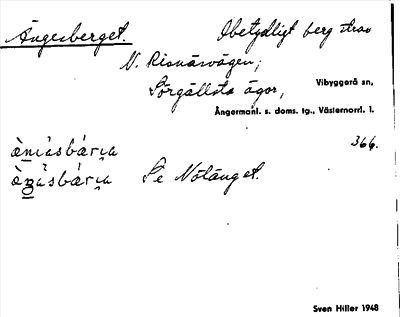 Ängesberget. Obetydligt berg strax
N. Risnäsvägen;
Sörgällsta ägor,
Vibyggerå sn,
Ångermanl. s. doms. tg., Västernorrl. l.
366.
Se Nötänget.
Sven Hiller 1948